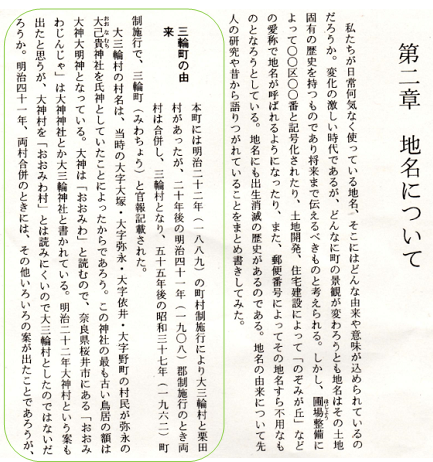 第二章 地名について
私たちが日常何気なく使っている地名、そこにはどんな由来や意味が込められているの
だろうか。変化の激しい時代であるが、どんなに町の景観が変わろうとも地名はその土地
固有の歴史を持つものであり将来まで伝えるべきものと考えられる。しかし、圃場整備に
よって〇〇区〇〇番と記号化されたり、土地開発、住宅建設によって「のぞみが丘」など
の愛称で地名が呼ばれるようになったり、また、郵便番号によってその地名すら不用なも
のとなろうとしている。地名にも出生消滅の歴史があるのである。地名の由来について先
人の研究や昔から語りつがれていることをまとめ書きしてみた。
三輪町の由
来
本町には明治二十二年(一八八九)の町村制施行により大三輪村と栗田
村があったが、二十年後の明治四十一年(一九〇八)郡制施行のとき両
村は合併し、三輪村となり、五十五年後の昭和三十七年(一九六二)町
制施行で、三輪町(みわちょう)と官報記載された。
大三輪村の村名は、当時の大字大塚・大字弥永・大字依井・大字野町の村民が弥永の
大己貴神社を氏神としていたことによったからであろう。この神社の最も古い鳥居の額は
大神大明神となっている。大神は「おおみわ」と読むので、奈良県桜井市にある「おおみ
わじんじゃ」は大神神社とか大三輪神社と書かれている。明治二十二年大神村という案も
出たと思うが、大神村を「おおみわ村」とは読みにくいので大三輪村としたのではないだ
ろうか。明治四十一年、両村合併のときには、その他いろいろの案が出たことであろうが、